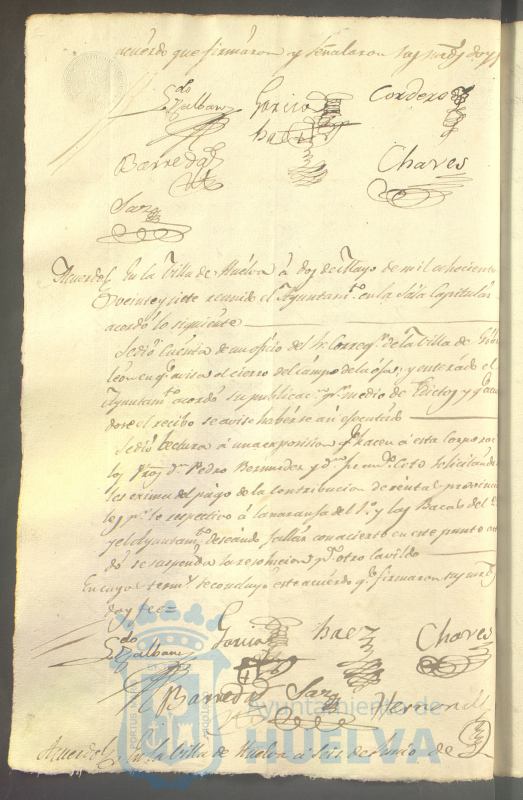 acuerdo que firmaron y señalaron sus mrds doy fe
Ldo Galban Garcia Cordero
Baez
Barreda Chaves
Sanz
Acuerdo En la Villa de Huelva á dos de Mayo de mil ochocientos
veinte y siete reunido el Ayuntamto. en la Sala Capitular
acordó lo siguiente
Se dió Cuenta de un oficio del Sr. Correge. de la Villa de Gibra
leon en qe. avisa el cierro del campo de y enterado el
Ayuntamto acordó su publicacn. pr. medio de Edictos y qe. acu
dose el recibo se avise haberse así ejecutado
Se dió Lectura á una exposicion qe. hacen á esta Corporacn
los Dn. Pedro Bermudez y Dn. Coto solicitando
les exima del pago de la contribucion de rentas provincia
les pr. lo respectivo á la naranja del y las Bacas del
y el Ayuntamto. deseando fallar con acierto en este punto acor
dó se suspenda la resolucion pa. otro Cavildo
En cuyos termos. se concluyó este acuerdo qe. firmaron sus mrds
doy fee=
Ldo Galban Garcia Baez Chaves
Barreda Sanz Hernandz
Acuerdo En la Villa de Huelva á seis de de
Ayuntamiento de
HUELVA